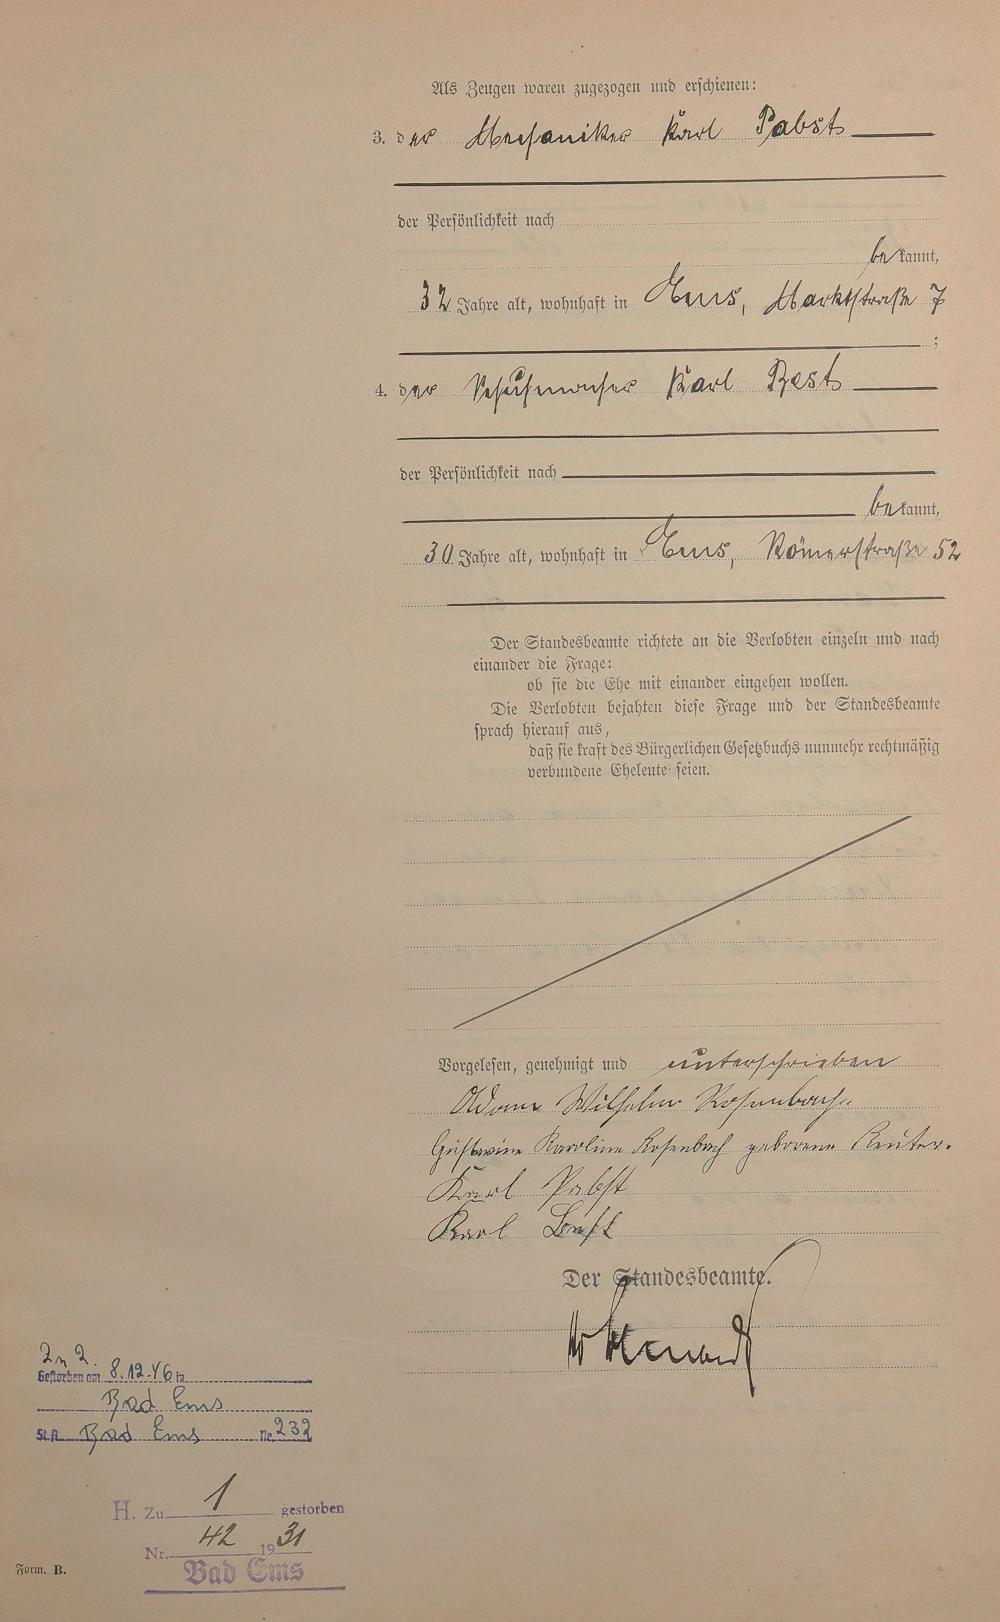 Als Zeugen waren zugezogen und erschienen:
3. der Mechaniker Karl Pabst
der Persönlichkeit nach
be kannt,
32 Jahre alt, wohnhaft in Ems, Marktstraße 7
;
4. der Schuhmacher Karl Best
der Persönlichkeit nach
be kannt,
30 Jahre alt, wohnhaft in Ems, Römerstraße 52
Der Standesbeamte richtete an die Verlobten einzeln und nach
einander die Frage:
ob sie die Ehe mit einander eingehen wollen.
Die Verlobten bejahten diese Frage und der Standesbeamte
sprach hierauf aus,
daß sie kraft des Bürgerlichen Gesetzbuchs nunmehr rechtmäßig
verbundene Eheleute seien.
Vorgelesen, genehmigt und unterschrieben
Adam Wilhelm Rosenbach.
Gustavine Karoline Rosenbach geborene Reuter.
Karl Pabst
Karl Best
Der Standesbeamte.
Zu 2.
Gestorben am 8.12.46 in
Bad Ems
St.A. Bad Ems Nr. 232
H. Zu 1 gestorben
Nr. 42 1931
Bad Ems
Form. B.